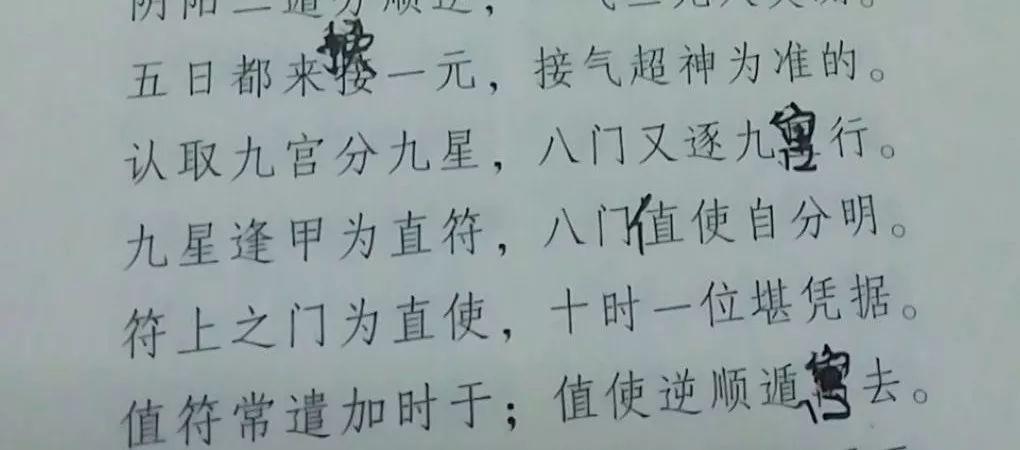 阴阳二遁分顺逆，一气三元人莫测。
五日都来换一元，接气超神为准的。
认取九宫分九星，八门又逐九宫行。
九星逢甲为直符，八门值使自分明。
符上之门为直使，十时一位堪凭据。
值符常遣加时于；值使逆顺遁宫去。